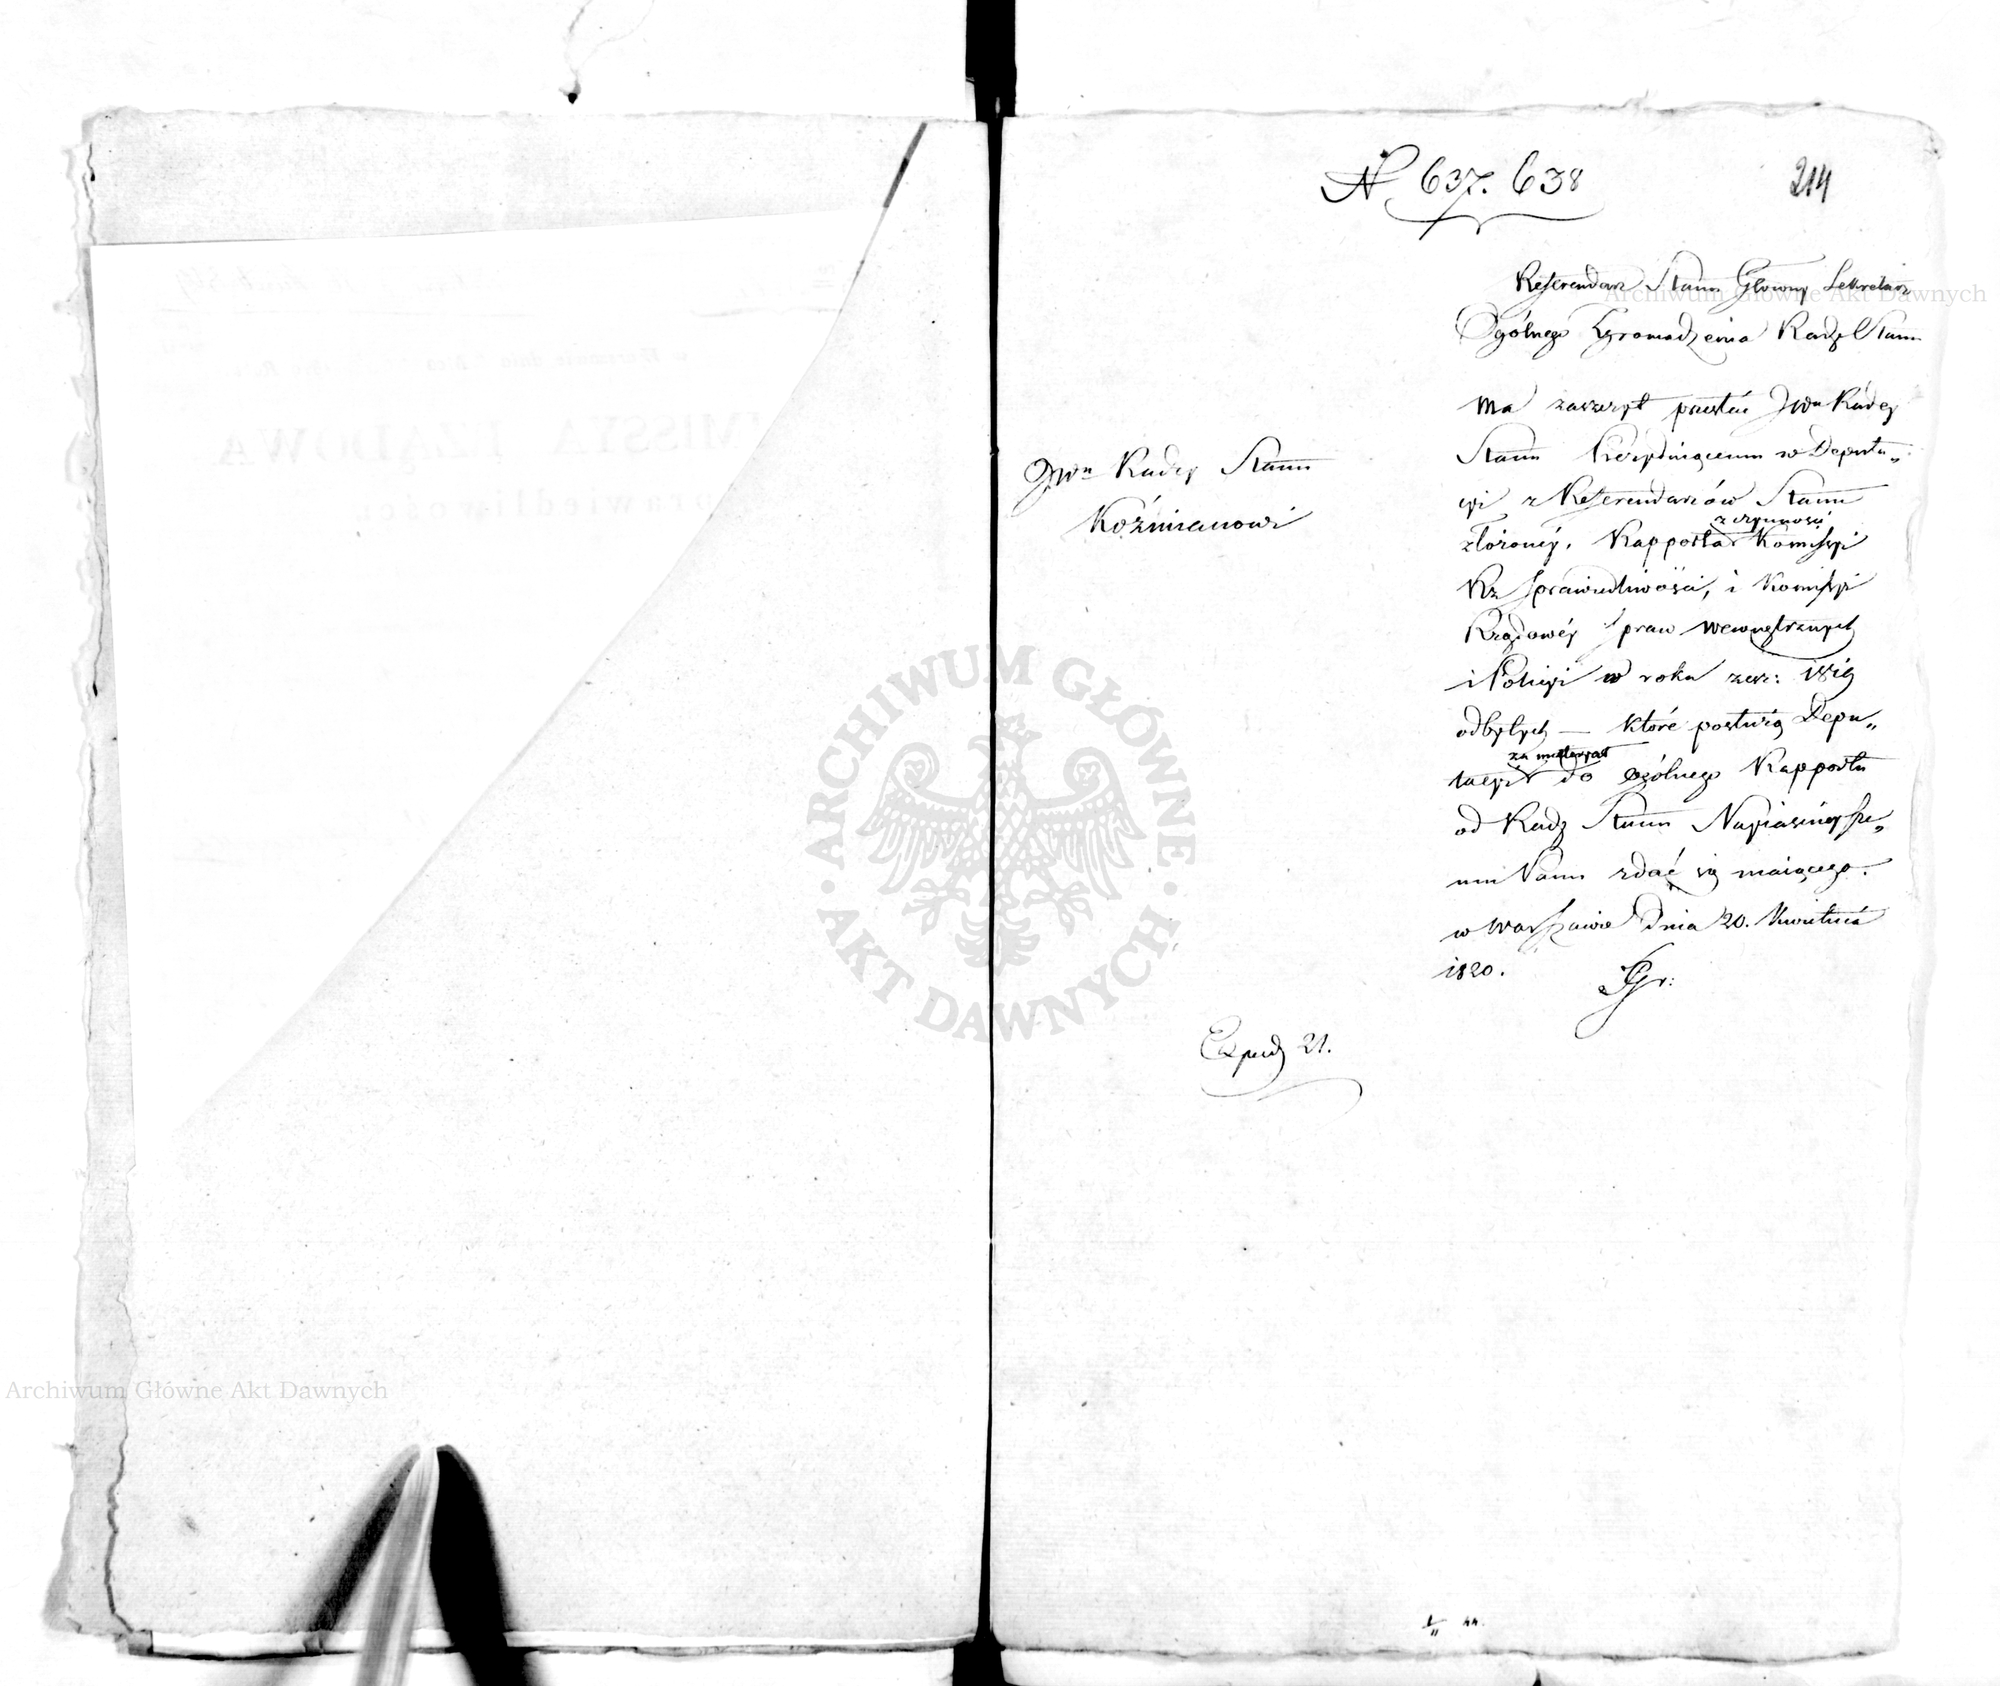 N 637. 638
214
Referendarz Stanu Główny Sekretarz
Ogólnego Zgromadzenia Rady Stanu
ma zaszczyt przesłać JWu Radcy
Stanu Prezyduiącemu w Deputa„
cyi z Referendarzów Stanu
z czynności
złożoney, Rapporta Komissyi
Rz Sprawiedliwości, i Komissyi
Rządowéy Spraw Wewnętrznych
i Policyi w roku zesz: 1819
odbytych — które posłużą Depu„
za materyał
tacyi do ogólnego Rapportu
od Rady Stanu Nayiaśnieysze„
mu Panu zdać się maiącego.
w Warszawie Dnia 20. Kwietnia
1820.
JWu Radcy Stanu
Koźmianowi
Exped 21.
44.
ARCHIWUM GŁÓWNE
AKT DAWNYCH
Archiwum Główne Akt Dawnych
Archiwum Główne Akt Dawnych